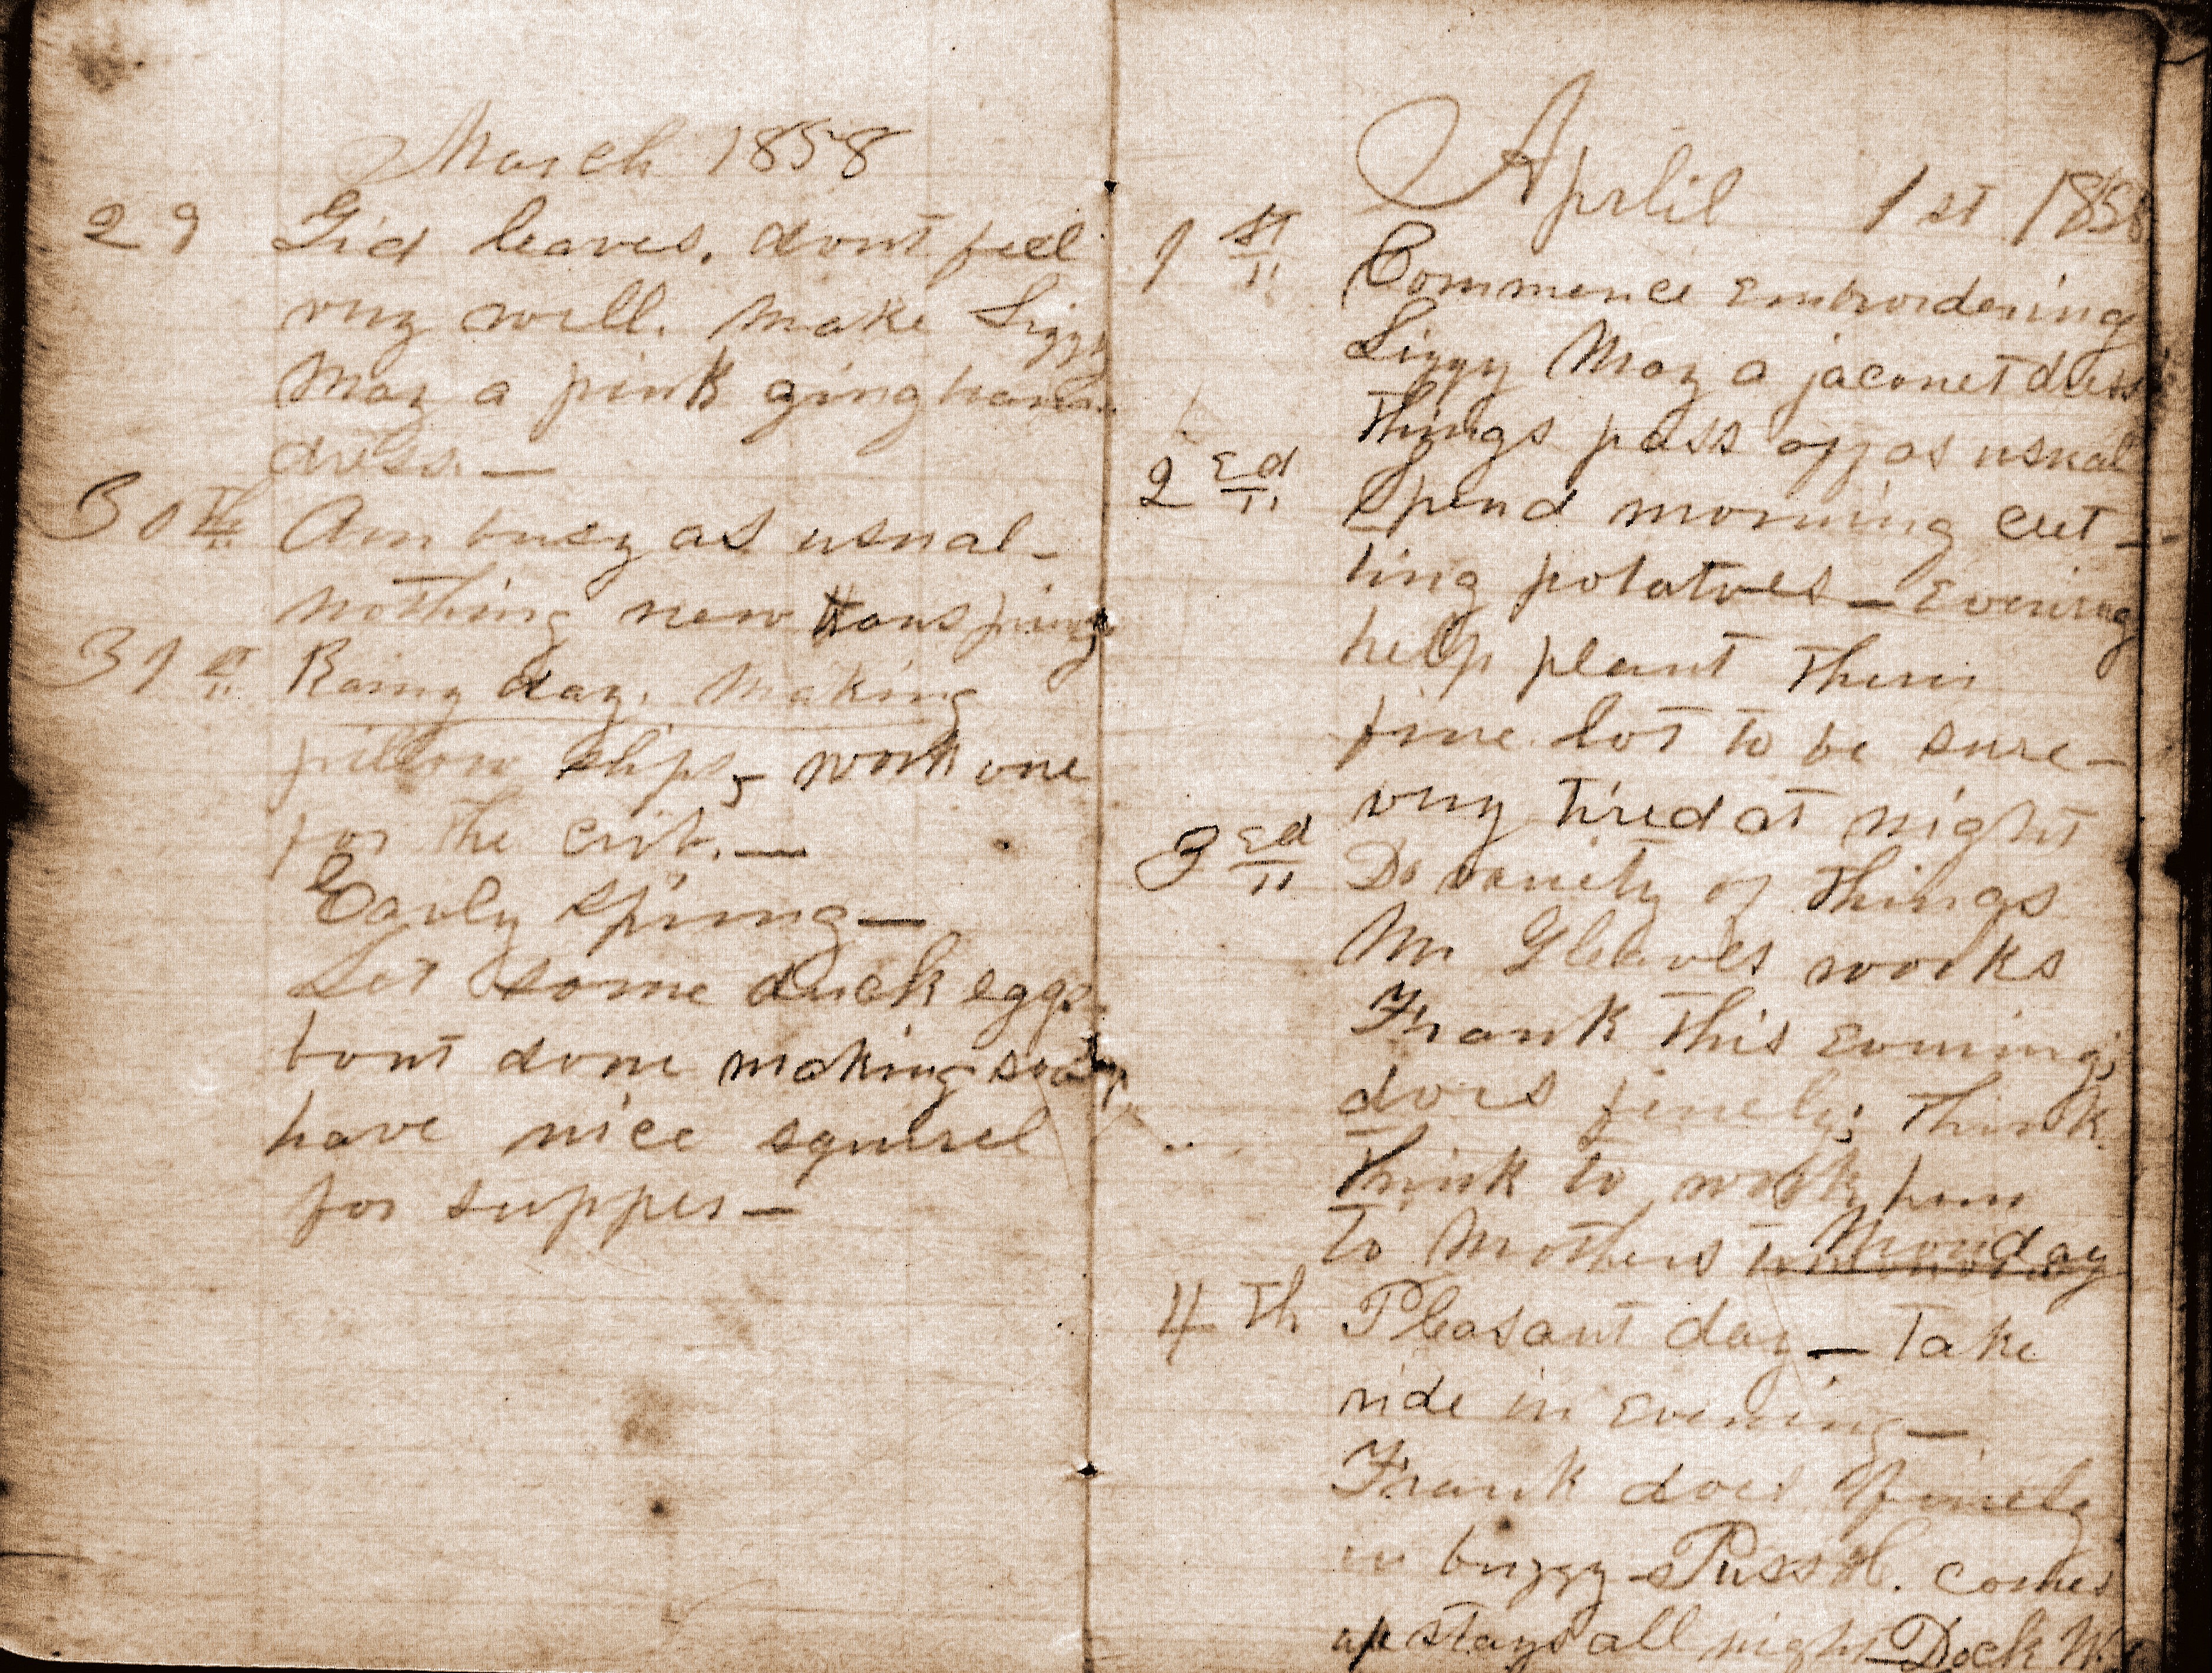 March 1858
29 Gid leaves. dont feel
very well. Make Lizzy
May a pink gingham
dress —
30th Am busy as usual –
nothing new transpiring
31st Rainy day. Making
pillow slips, work one
for the crib. —
Early spring —
Set some duck eggs
bout done making soap
have nice squirel
for supper —
Aprlil 1st 1858
1st Commence Embroidering
Lizzy May a jaconet dress
Things pass off as usual
2ed Spend morning cut –
ting potatoes – Evening
help plant them
fine lot to be sure –
very tired at night
3ed Do variety of things
Mr Gleaves works
Frank this Evening;
does finely; think
think to work him
to Mothers Monday
4th Pleasant day – Take
ride in Evening –
Frank does finely
in buggy – Puss H. comes
up stays all night – Dock W.